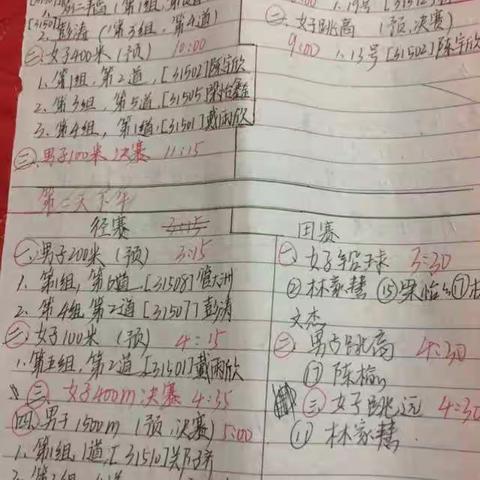 2. 彭涛 (第3组, 第4道)
㊁女子400米 (预) 10:00
1. 第1组, 第2道, [31502]陈宇欣
2. 第3组, 第5道 [31505]梁怡鑫
3. 第4组, 第1道 [31501]戴雨欣
㊂男子100米 决赛 11:15
㊁女子跳高 (预,决赛)
9:00 1.13号 [31502]陈宇欣
第二天下午
径赛 3:15
㊀男子200米 (预) 3:15
1. 第1组, 第6道 [31508]管大洲
2. 第4组 第2道 [31507]彭涛
㊁女子100米 (预) 4:15
1. 第五组, 第2道 [31501]戴雨欣
㊂女子400m 决赛 4:35
㊃男子1500m (预,决赛) 5:00
1. 第1组, 1道 [31510]
田赛
㊀女子铅球 3:30
②林家慧 ⑮梁怡 ⑰
文杰
㊁男子跳高 4:30
⑰陈
㊂女子跳远 4:30
⑪林家慧